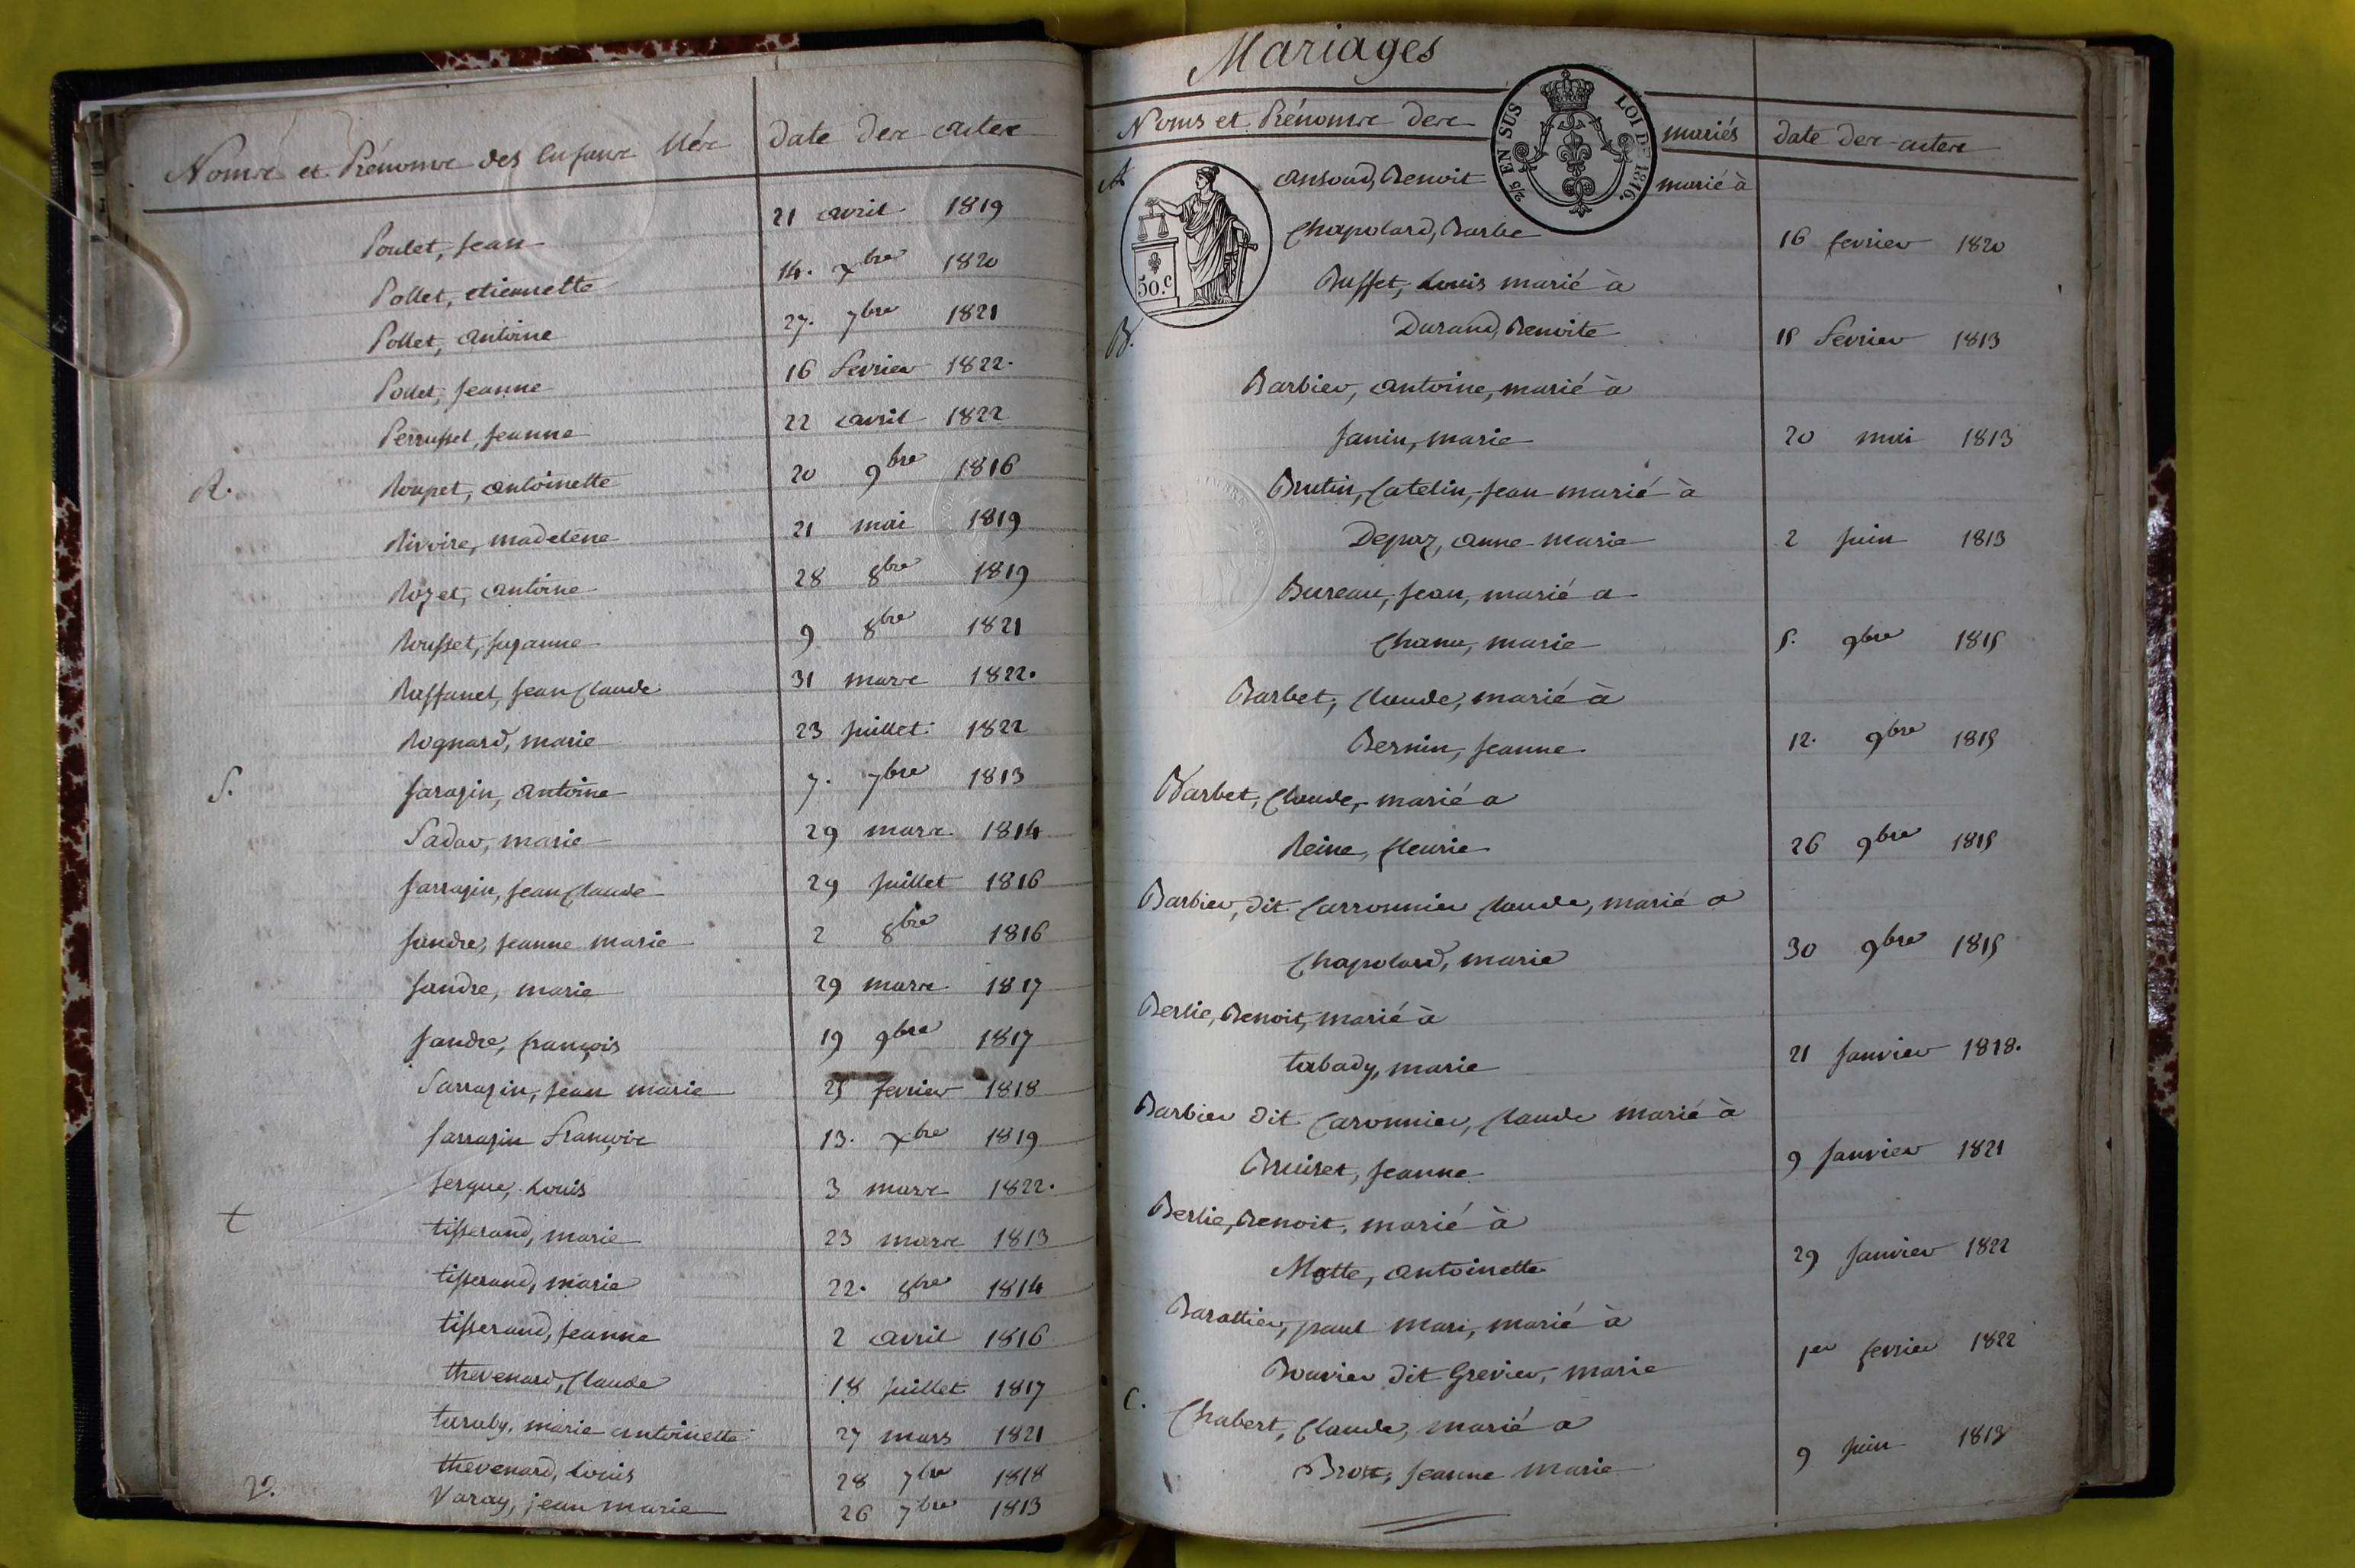 Noms et Prénoms des Enfans Nés date des actes
Poulet, Jean 21 avril 1819
Pollet, etiennette 14. xbre 1820
Pollet, antoine 27. 7bre 1821
Pollet, Jeanne 16 fevrier 1822.
Perrusset, Jeanne 22 avril 1822
R. Roupet, antoinette 20 9bre 1816
Rivoire, madelene 21 mai 1819
Rozet, antoine 28 8bre 1819
Rousset, suzanne 9 8bre 1821
Ruffanel, Jean Claude 31 mars 1822.
Rognard, marie 23 Juillet 1822
S. Sarazin, antoine 7. 7bre 1813
Sadar, marie 29 mars 1814
Sarrazin, Jean Claude 29 Juillet 1816
Sandre, Jeanne marie 2 8bre 1816
Sandre, marie 29 mars 1817
Sandre, françois 19 9bre 1817
Sarrazin, Jean marie 25 fevrier 1818
Sarrazin François 13. xbre 1819
Sergue, Louis 3 mars 1822.
t tisserand, marie 23 mars 1813
tisserand, marie 22. 8bre 1814
tisserand, Jeanne 2 avril 1816
thevenard, Claude 18 Juillet 1817
turuby, marie antoinette 27 mars 1821
thevenard, Louis 28 7bre 1818
V. Varay, jean marie 26 7bre 1813
Mariages
Noms et Prénoms des mariés date des actes
2/5 EN SUS LOI DE 1816.
50.c
A ansoud, Benoit marié à
Chapolard, Barbe 16 fevrier 1820
Buffet, Louis marié à
B. Durand, Benoite 15 fevrier 1813
Barbier, antoine, marié à
Janin, marie 20 mai 1813
Brutin, Catelin, Jean marié à
Depaz, anne marie 2 Juin 1813
Bureau, Jean, marié a
Chanu, marie 5. 9bre 1815
Barbet, Claude, marié à
Bernin, Jeanne. 12. 9bre 1815
Barbet, Claude, marié a
Reine, fleurie 26 9bre 1815
Barbier, dit Carronnier Claude, marié a
Chapolard, marie 30 9bre 1815
Berlie, Benoit, marié à
tabady, marie 21 Janvier 1818.
Barbier dit Caronnier, Claude marié à
Bruiset, Jeanne 9 Janvier 1821
Berlie, Benoit, marié à
Motte, antoinette 29 Janvier 1822
Barattier, paul Mari, marié à
Bouvier dit Grevier, marie 1er fevrier 1822
C. Chabert, Claude, marié a
Brost, Jeanne Marie 9 Juin 1813